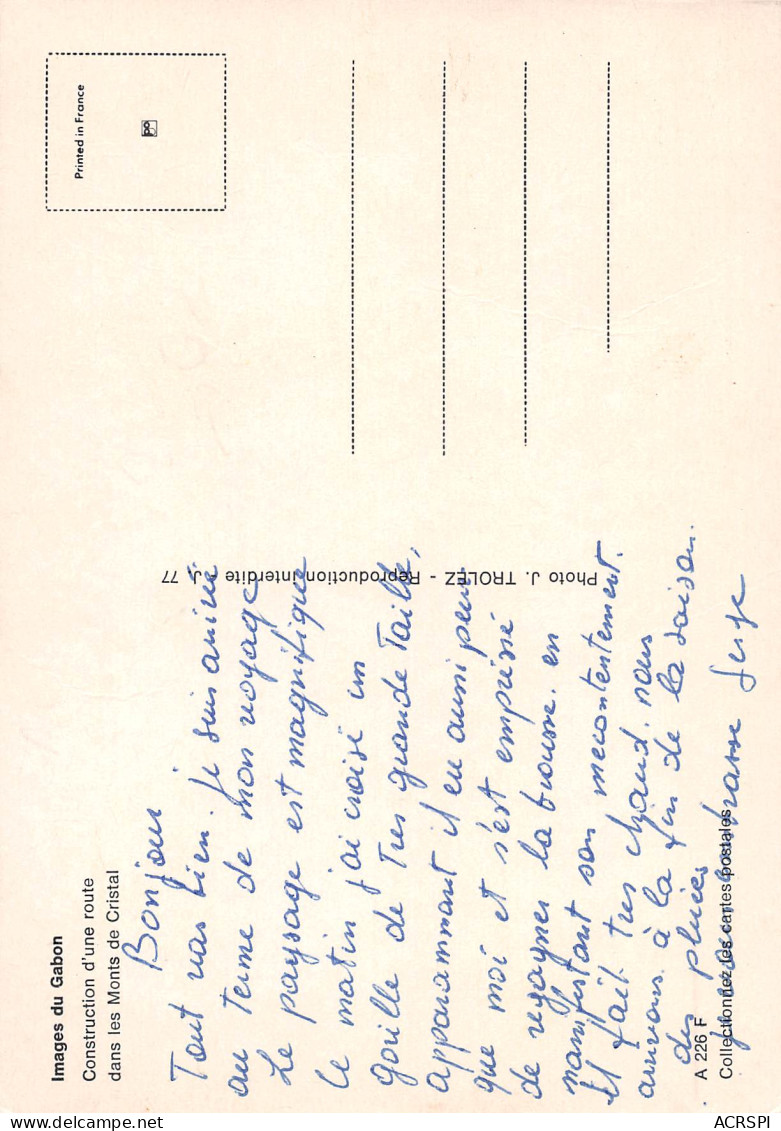 Images du Gabon
Construction d'une route
dans les Monts de Cristal
Bonjour
Tout vas bien. Je suis arrivé
au terme de mon voyage
Le paysage est magnifique
Ce matin j'ai croisé un
gorille de Tres grande Taille,
apparamment il eu aussi peur
que moi et s'est empréssé
de regagner la brousse. en
manifestant son mecontentement.
Il fait tres chaud. nous
arrivons à la fin de la saison.
des pluies
je vous embrasse Serge
A 226 F
Collectionnez les cartes postales
Photo J. TROLEZ - Reproduction interdite - J. 77
Printed in France
ACRSPI